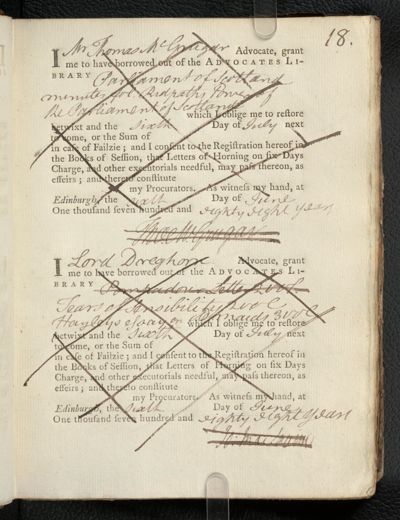 18.
I Mr Thomas McGrugar Advocate, grant
me to have borrowed out of the ADVOCATES LI-
BRARY Parliament of Scotland
minutes of Ridpaths Power of
the Parliament of Scotland
which I oblige me to restore
betwixt and the Sixth Day of July next
to come, or the Sum of
in case of Failzie; and I consent to the Registration hereof in
the Books of Session, that Letters of Horning on six Days
Charge, and other executorials needful, may pass thereon, as
effeirs; and thereto constitute
my Procurators. As witness my hand, at
Edinburgh, the sixth Day of June
One thousand seven hundred and eighty eight years
Thos McGrugar
I Lord Dreghorn Advocate, grant
me to have borrowed out of the ADVOCATES LI-
BRARY Pompadour Letters
Tears of Sensibility 2 vol
Hayleys Essay on old maids 3 vol
which I oblige me to restore
betwixt and the Sixth Day of July next
to come, or the Sum of
in case of Failzie; and I consent to the Registration hereof in
the Books of Session, that Letters of Horning on six Days
Charge, and other executorials needful, may pass thereon, as
effeirs; and thereto constitute
my Procurators. As witness my hand, at
Edinburgh, the sixth Day of June
One thousand seven hundred and eighty eight years